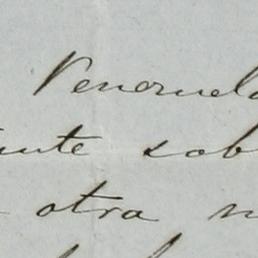 Venezuela
ante sob
otra n